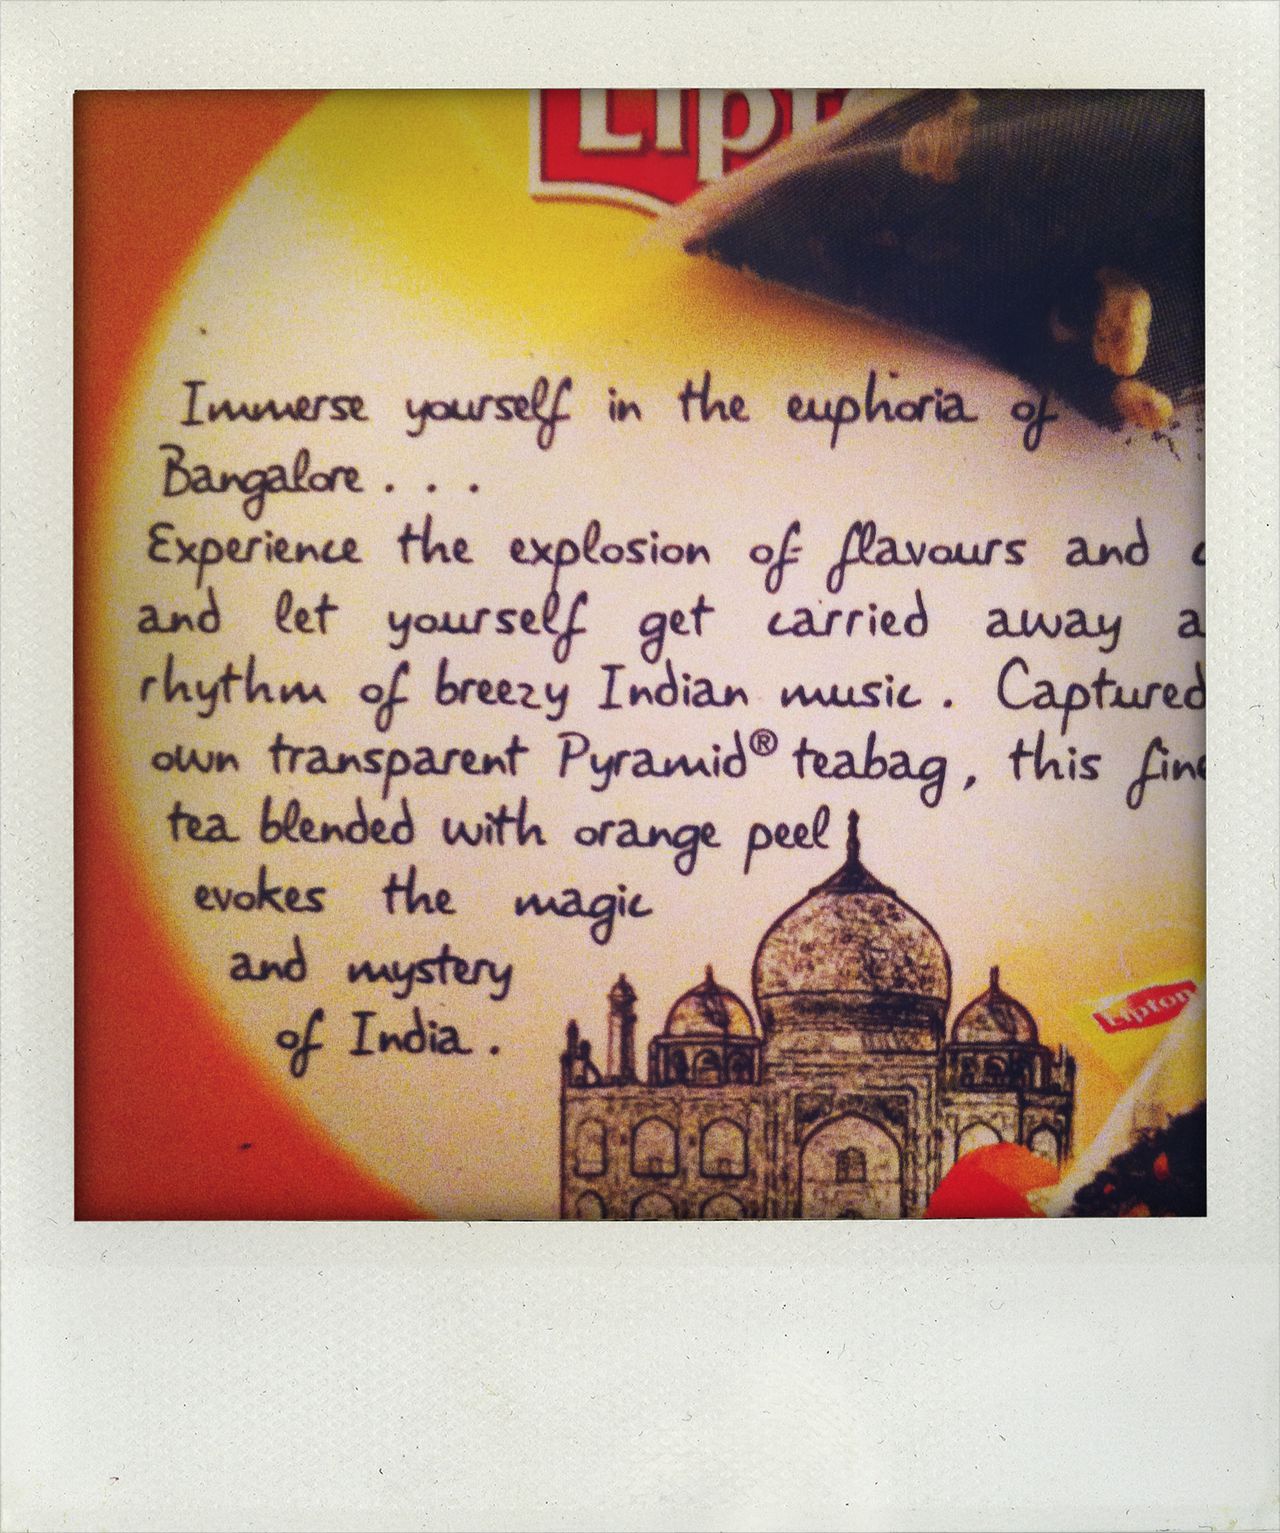 Lipt
Immerse yourself in the euphoria of
Bangalore . . .
Experience the explosion of flavours and
and let yourself get carried away a
rhythm of breezy Indian music. Captured
own transparent Pyramid® teabag, this fine
tea blended with orange peel
evokes the magic
and mystery
of India.
Lipton